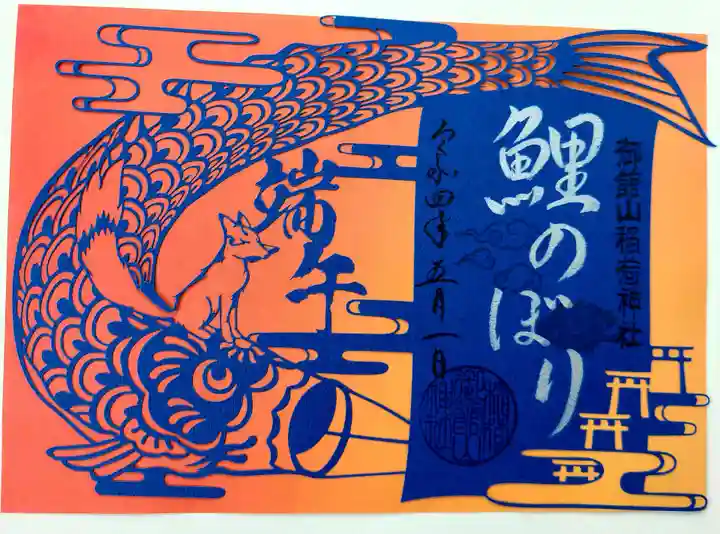 御館山稲荷神社
鯉のぼり
令和四年 五月一日
端午